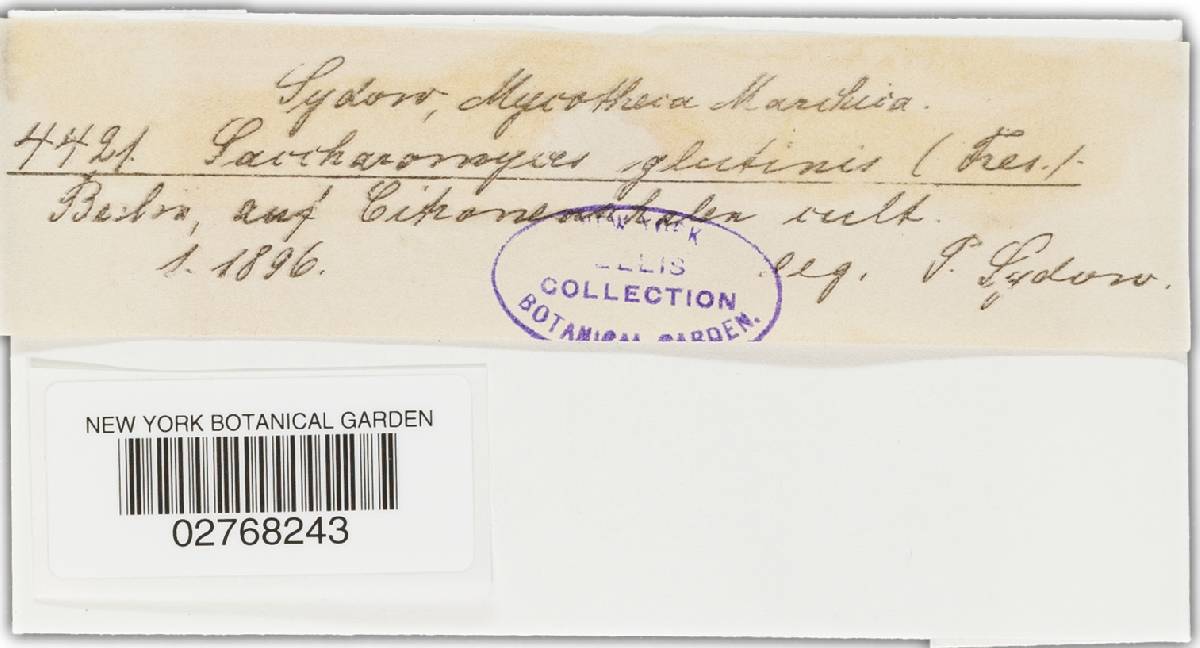 Sydow, Mycotheca Marchica.
4421. Saccharomyces glutinis (Fres.).
Berlin, auf Citronenschalen cult.
1. 1896. leg. P. Sydow.
ELLIS
COLLECTION
BOTANICAL GARDEN.
NEW YORK BOTANICAL GARDEN
02768243